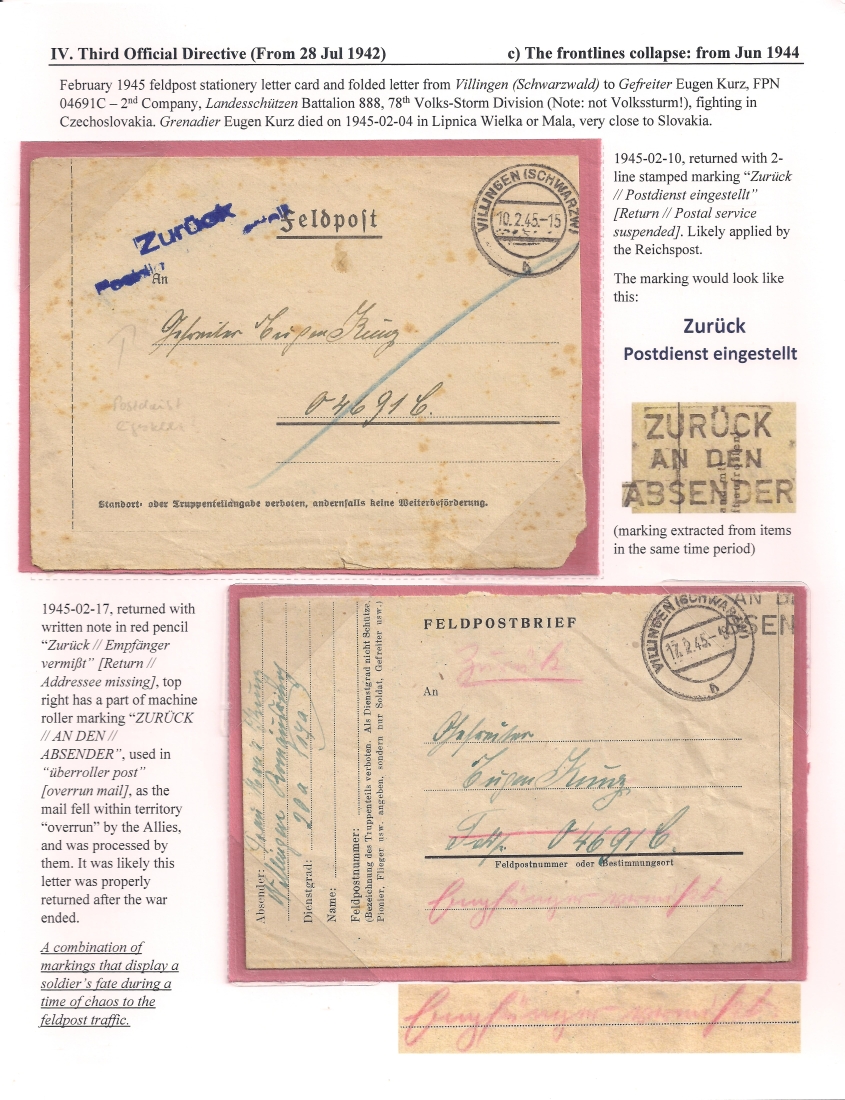 IV. Third Official Directive (From 28 Jul 1942) c) The frontlines collapse: from Jun 1944
February 1945 feldpost stationery letter card and folded letter from Villingen (Schwarzwald) to Gefreiter Eugen Kurz, FPN
04691C – 2nd Company, Landesschützen Battalion 888, 78th Volks-Storm Division (Note: not Volkssturm!), fighting in
Czechoslovakia. Grenadier Eugen Kurz died on 1945-02-04 in Lipnica Wielka or Mala, very close to Slovakia.
Zurück
Feldpost
VILLINGEN (SCHWARZW)
10.2.45.-15
b
An
Gefreiter Eugen Kurz
04691C.
Postdienst
Standort- oder Truppenteilangabe verboten, andernfalls keine Weiterbeförderung.
1945-02-10, returned with 2-
line stamped marking “Zurück
// Postdienst eingestellt”
[Return // Postal service
suspended]. Likely applied by
the Reichspost.
The marking would look like
this:
Zurück
Postdienst eingestellt
ZURÜCK
AN DEN
ABSENDER
(marking extracted from items
in the same time period)
1945-02-17, returned with
written note in red pencil
“Zurück // Empfänger
vermißt” [Return //
Addressee missing], top
right has a part of machine
roller marking “ZURÜCK
// AN DEN //
ABSENDER”, used in
“überroller post”
[overrun mail], as the
mail fell within territory
“overrun” by the Allies,
and was processed by
them. It was likely this
letter was properly
returned after the war
ended.
A combination of
markings that display a
soldier’s fate during a
time of chaos to the
feldpost traffic.
Absender:
Dienstgrad:
Name:
Feldpostnummer:
(Bezeichnung des Truppenteils verboten. Als Dienstgrad nicht Schütze,
Pionier, Flieger usw. angeben, sondern nur Soldat, Gefreiter usw.)
FELDPOSTBRIEF
VILLINGEN (SCHWARZW)
17.2.45.-
b
AN DE
BSEN
Zurück
An
Gefreiter
Eugen Kurz
04691C.
Feldpostnummer oder Bestimmungsort
Empfänger vermißt
Empfänger vermißt